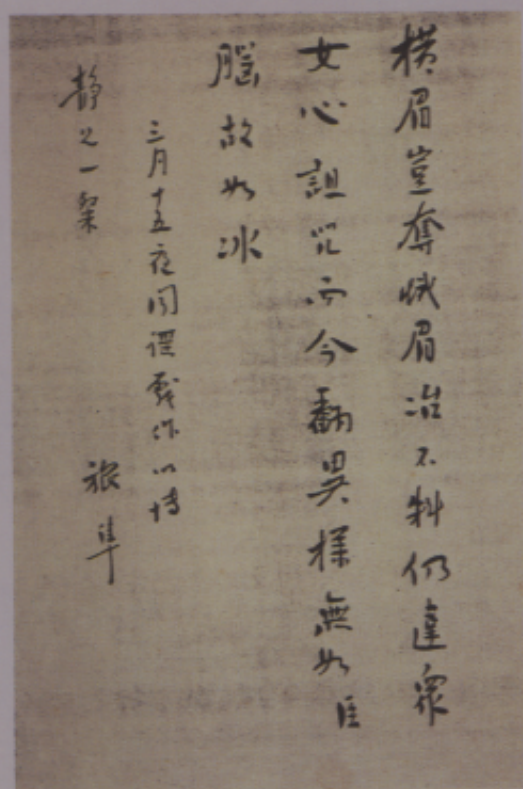 横眉豈奪蛾眉冶不料仍違衆
女心詛咒而今翻異樣無如臣
腦故如冰
三月十五夜聞謠戲作以博
静兄一粲
旅隼